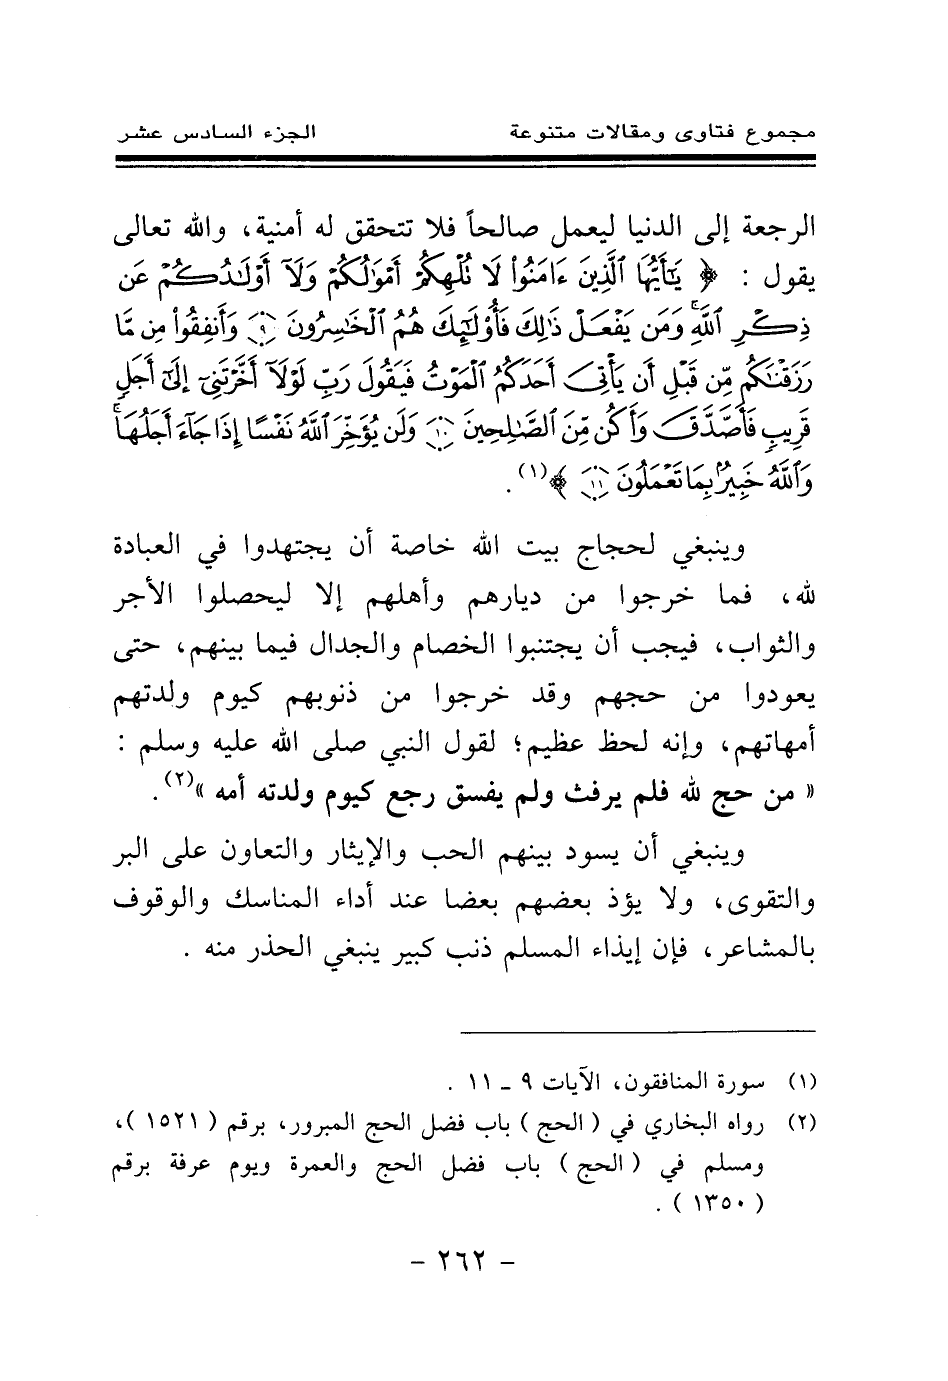 مجموع فتاوى ومقالات متنوعة الجزء السادس عشر
الرجعة إلى الدنيا ليعمل صالحاً فلا تتحقق له أمنية، والله تعالى
يقول : ﴿ يَٰٓأَيُّهَا ٱلَّذِينَ ءَامَنُواْ لَا تُلْهِكُمْ أَمْوَٰلُكُمْ وَلَآ أَوْلَٰدُكُمْ عَن
ذِكْرِ ٱللَّهِۚ وَمَن يَفْعَلْ ذَٰلِكَ فَأُوْلَٰٓئِكَ هُمُ ٱلْخَٰسِرُونَ ۝٩ وَأَنفِقُواْ مِن مَّا
رَزَقْنَٰكُم مِّن قَبْلِ أَن يَأْتِىَ أَحَدَكُمُ ٱلْمَوْتُ فَيَقُولَ رَبِّ لَوْلَآ أَخَّرْتَنِىٓ إِلَىٰٓ أَجَلٍ
قَرِيبٍ فَأَصَّدَّقَ وَأَكُن مِّنَ ٱلصَّٰلِحِينَ ۝١٠ وَلَن يُؤَخِّرَ ٱللَّهُ نَفْسًا إِذَا جَآءَ أَجَلُهَاۚ
وَٱللَّهُ خَبِيرٌۢ بِمَا تَعْمَلُونَ ۝١١ ﴾(١) .
وينبغي لحجاج بيت الله خاصة أن يجتهدوا في العبادة
لله، فما خرجوا من ديارهم وأهلهم إلا ليحصلوا الأجر
والثواب، فيجب أن يجتنبوا الخصام والجدال فيما بينهم، حتى
يعودوا من حجهم وقد خرجوا من ذنوبهم كيوم ولدتهم
أمهاتهم، وإنه لحظ عظيم؛ لقول النبي صلى الله عليه وسلم :
« من حج لله فلم يرفث ولم يفسق رجع كيوم ولدته أمه »(٢) .
وينبغي أن يسود بينهم الحب والإيثار والتعاون على البر
والتقوى، ولا يؤذ بعضهم بعضا عند أداء المناسك والوقوف
بالمشاعر، فإن إيذاء المسلم ذنب كبير ينبغي الحذر منه .
(١) سورة المنافقون، الآيات ٩ ــ ١١ .
(٢) رواه البخاري في ( الحج ) باب فضل الحج المبرور، برقم ( ١٥٢١ )،
ومسلم في ( الحج ) باب فضل الحج والعمرة ويوم عرفة برقم
( ١٣٥٠ ) .
- ٢٦٢ -